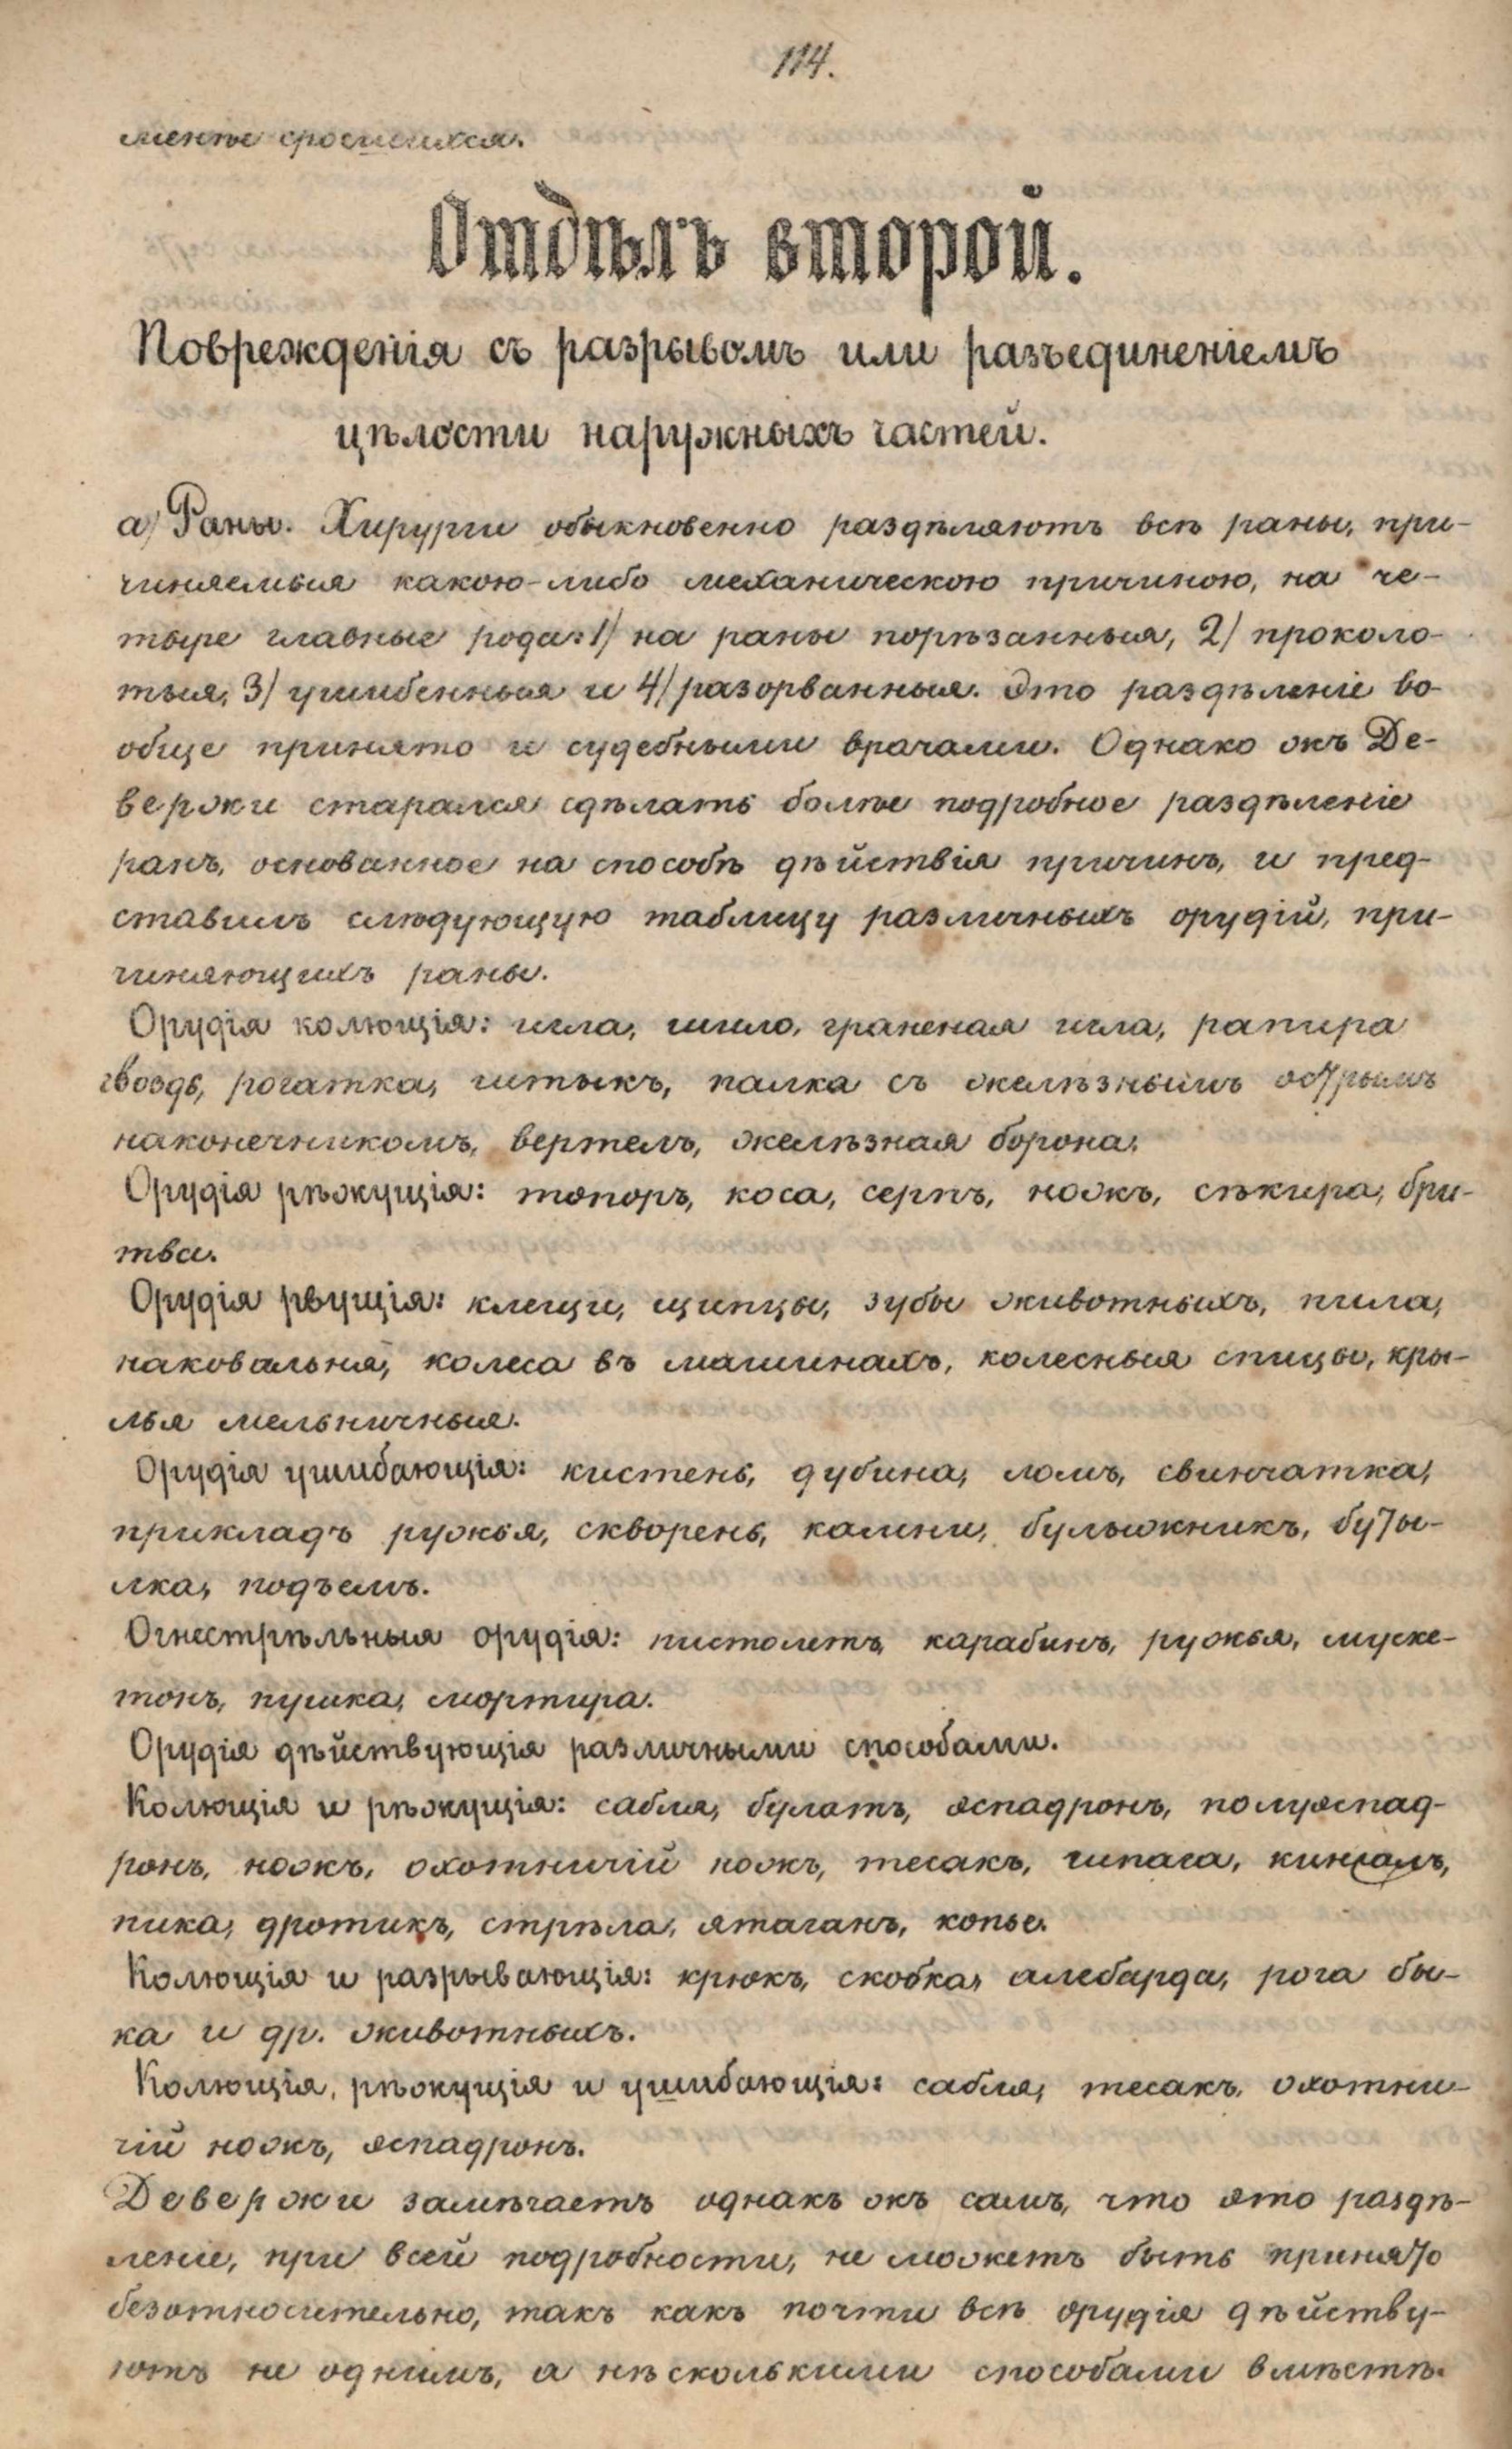 114.
менѣе сросшихся.
Отдѣлъ второй.
Поврежденія съ разрывомъ или разъединеніемъ
цѣлости наружныхъ частей.
а) Раны. Хирурги обыкновенно раздѣляютъ всѣ раны, при-
чиняемыя какою-либо механическою причиною, на че-
тыре главные рода: 1) на раны порѣзанныя, 2) проколо-
тыя, 3) ушибенныя и 4) разорванныя. Это раздѣленіе во-
обще принято и судебными врачами. Однако жъ Де-
вержи старался сдѣлать болѣе подробное раздѣленіе
ранъ, основанное на способѣ дѣйствія причинъ, и пред-
ставилъ слѣдующую таблицу различныхъ орудій, при-
чиняющихъ раны.
Орудія колющія: игла, шило, граненая игла, рапира
гвоздь, рогатка, штыкъ, палка съ желѣзнымъ острымъ
наконечникомъ, вертелъ, желѣзная борона.
Орудія рѣжущія: топоръ, коса, серпъ, ножъ, сѣкира, бри-
тва.
Орудія рвущія: клещи, щипцы, зубы животныхъ, пила,
наковальня, колеса въ машинахъ, колесныя спицы, кры-
лья мельничныя.
Орудія ушибающія: кистень, дубина, ломъ, свинчатка,
прикладъ ружья, скворень, камни, булыжникъ, буты-
лка, подъемъ.
Огнестрѣльныя орудія: пистолетъ, карабинъ, ружья, муске-
тонъ, пушка, мортира.
Орудія дѣйствующія различными способами.
Колющія и рѣжущія: сабля, булатъ, эспадронъ, полуэспад-
ронъ, ножъ, охотничій ножъ, тесакъ, шпага, кинжалъ,
пика, дротикъ, стрѣла, ятаганъ, копье.
Колющія и разрывающія: крюкъ, скобка, алебарда, рога бы-
ка и др. животныхъ.
Колющія, рѣжущія и ушибающія: сабля, тесакъ, охотни-
чій ножъ, эспадронъ.
Девержи замѣчаетъ однакъ жъ самъ, что это раздѣ-
леніе, при всей подробности, не можетъ быть принято
безотносительно, такъ какъ почти всѣ орудія дѣйству-
ютъ не однимъ, а нѣсколькими способами вмѣстѣ.